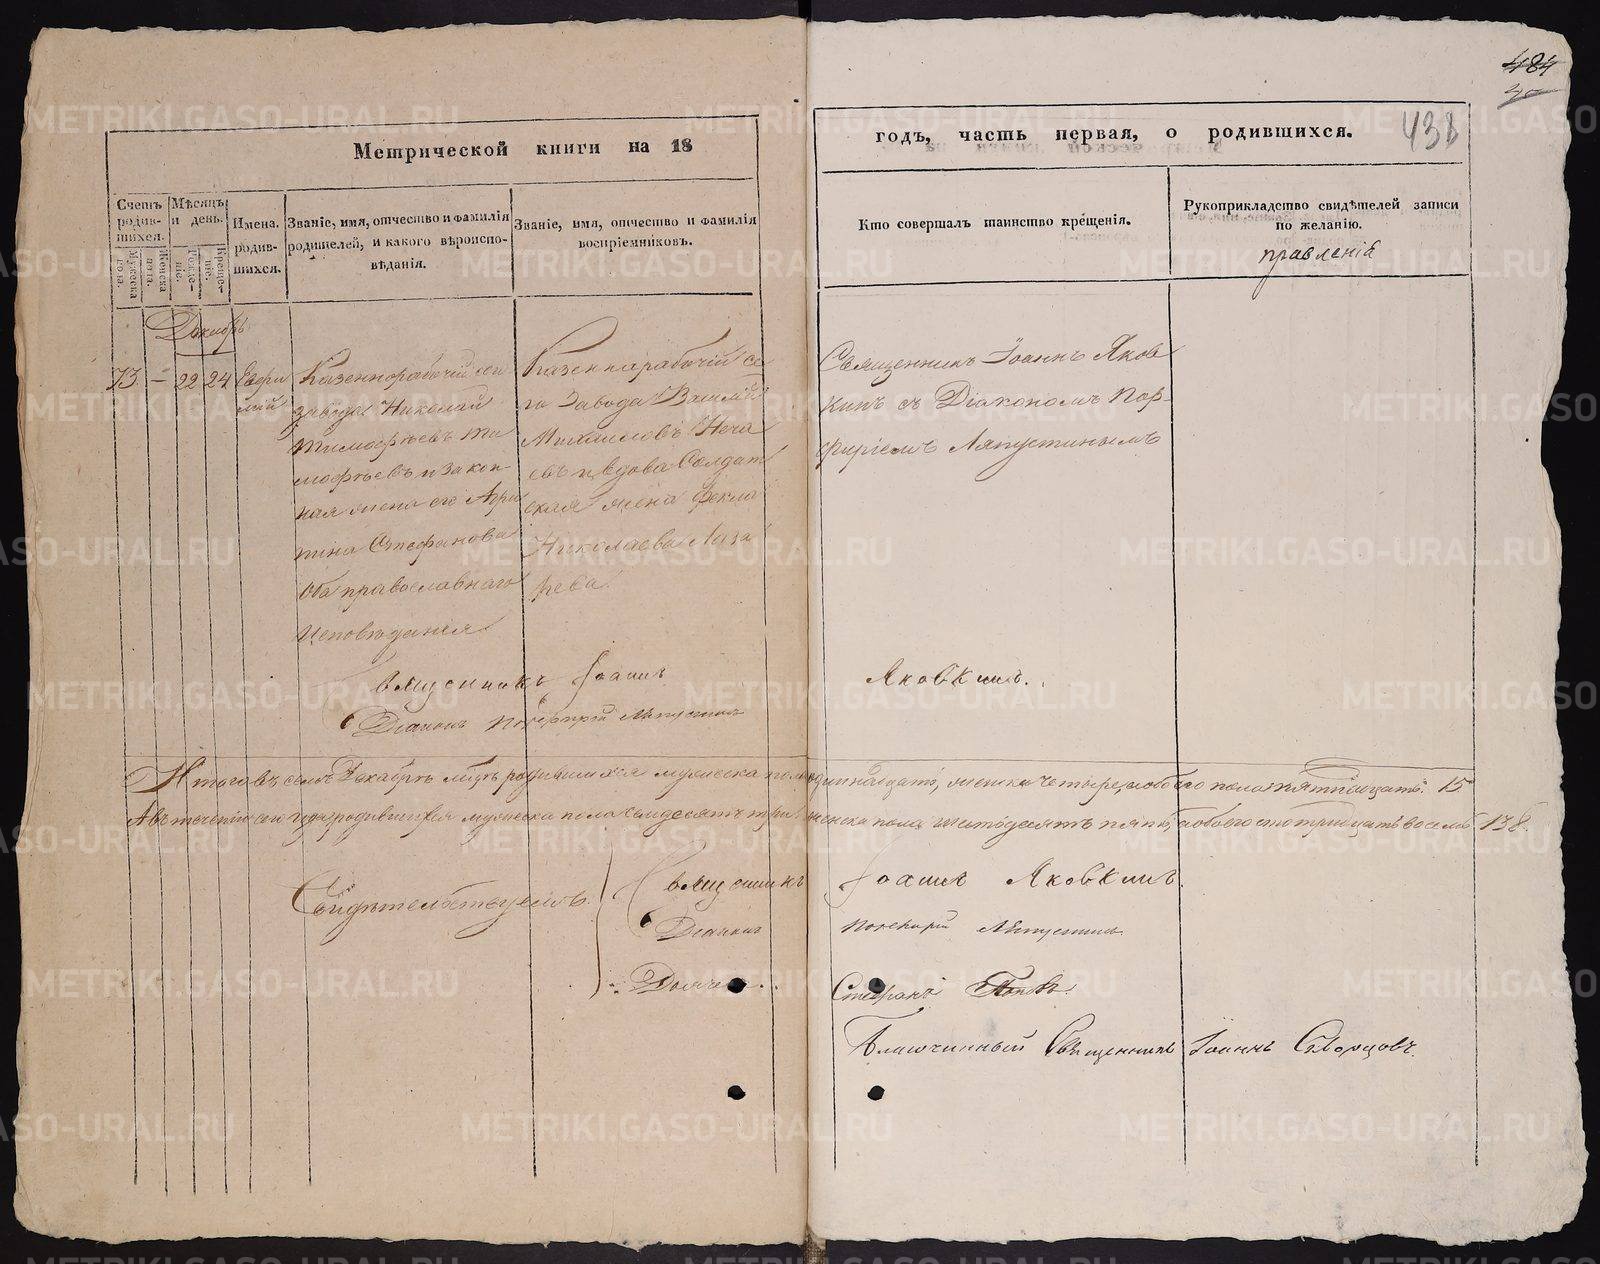 484
438
Метрической книги на 18
годъ, часть первая, о родившихся.
Счетъ родив-шихся.
Мужеска пола.
Женска пола.
Мѣсяцъ и день.
Рожде-ніе.
Креще-ніе.
Имена родив-шихся.
Званіе, имя, отчество и фамилія
родителей, и какого вѣроиспо-
вѣданія.
Званіе, имя, отчество и фамилія
воспріемниковъ.
Кто совершалъ таинство крещенія.
Рукоприкладство свидѣтелей записи
по желанію.
правленія
Декабрь
73 — 22 24
Евфи
мій
Казеннорабочій сего
завода Николай
Тимофѣевъ Ти
мофѣевъ и закон-
ная жена его Агри
пина Стефанова
Оба православнаго
Исповѣданія
Казеннорабочій се
го Завода Василій
Михаиловъ Неча
евъ и вдова Солдат
ская жена Фекла
Николаева Лаза
рева
Священникъ Іоаннъ Яков
кинъ съ Діакономъ Пор-
фиріемъ Ляпустинымъ
Священникъ Іоаннъ Яковкинъ.
Діаконъ Порфирій Ляпустинъ
Итого въ семъ Декабрѣ мцѣ родившихся мужеска пола одиннадцать, женска четыре, а обоего пола пятнадцать. 15
А въ теченіи сего года родившихся мужеска пола семдесятъ три женска пола шестдесятъ пять, а обоего сто тридцать восемь 138.
Свидѣтельствуемъ.
Священникъ Іоаннъ Яковкинъ.
Діаконъ Порфирій Ляпустинъ
Дьячекъ Стефанъ Поповъ.
Благочинный Священникъ Іоаннъ Скворцовъ.
METRIKI.GASO-URAL.RU